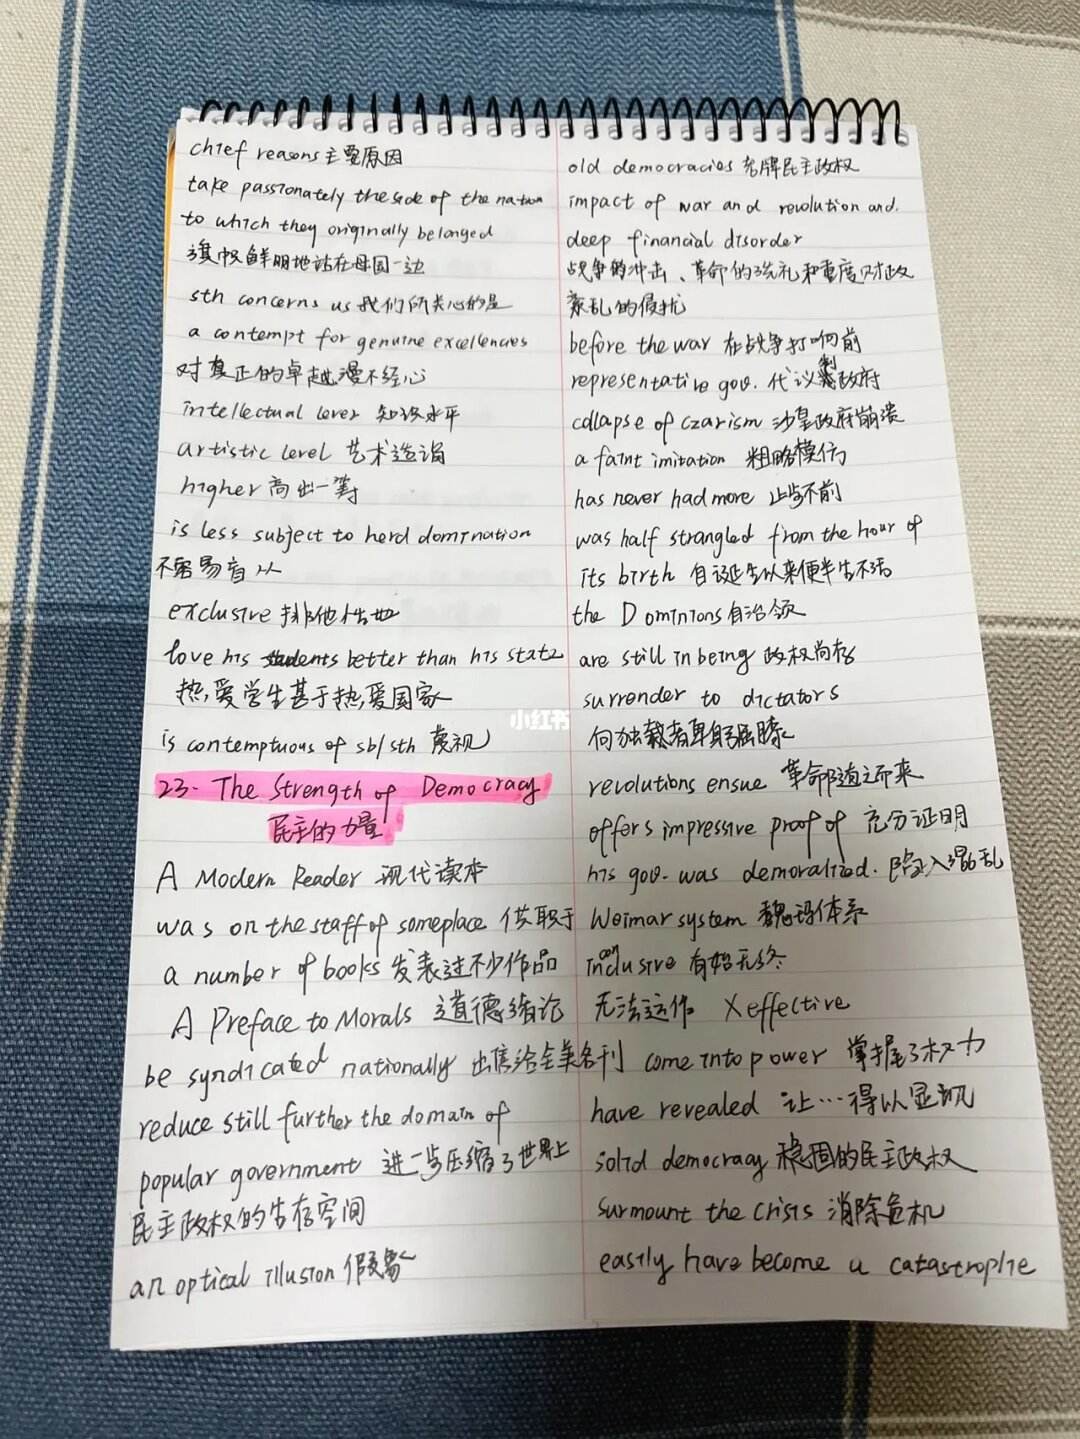 chief reasons 主要原因
take passionately the side of the nation
to which they originally belonged
旗帜鲜明地站在母国一边
sth concerns us 我们所关心的是
a contempt for genuine excellencies
对真正的卓越漫不经心
intellectual lever 知识水平
artistic level 艺术造诣
higher 高出一筹
is less subject to herd domination
不容易盲从
exclusive 排他性地
love his students better than his state
热爱学生甚于热爱国家
is contemptuous of sb/sth 蔑视
23. The Strength of Democracy
民主的力量
A Modern Reader 现代读本
was on the staff of someplace 供职于
a number of books 发表过不少作品
A Preface to Morals 道德绪论
be syndicated nationally 出售给全美各刊
reduce still further the domain of
popular government 进一步压缩了世界上
民主政权的生存空间
an optical illusion 假象
old democracies 老牌民主政权
impact of war and revolution and.
deep financial disorder
战争的冲击、革命的洗礼和重度财政
紊乱的侵扰
before the war 在战争打响前
representative gov. 代议制政府
collapse of czarism 沙皇政府崩溃
a faint imitation 粗略模仿
has never had more 止步不前
was half strangled from the hour of
its birth 自诞生以来便半生不活
the Dominions 自治领
are still in being 政权尚存
surrender to dictators
向独裁者卑躬屈膝
revolutions ensue 革命随之而来
offers impressive proof of 充分证明
his gov. was demoralized. 陷入混乱
Weimar system 魏玛体系
inconclusive 有始无终
无法运作 X effective
come into power 掌握了权力
have revealed 让…得以显现
solid democracy 稳固的民主政权
surmount the crisis 消除危机
easily have become a catastrophe
小红书